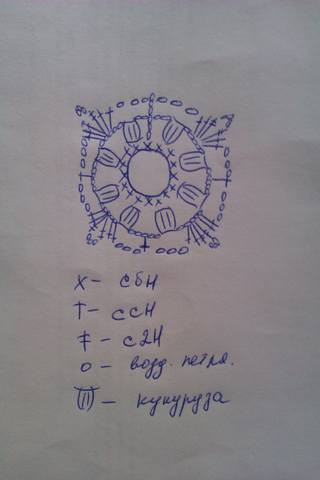 х – сбн
† – ссн
‡ – с2н
о – возд. петля.
– кукуруза